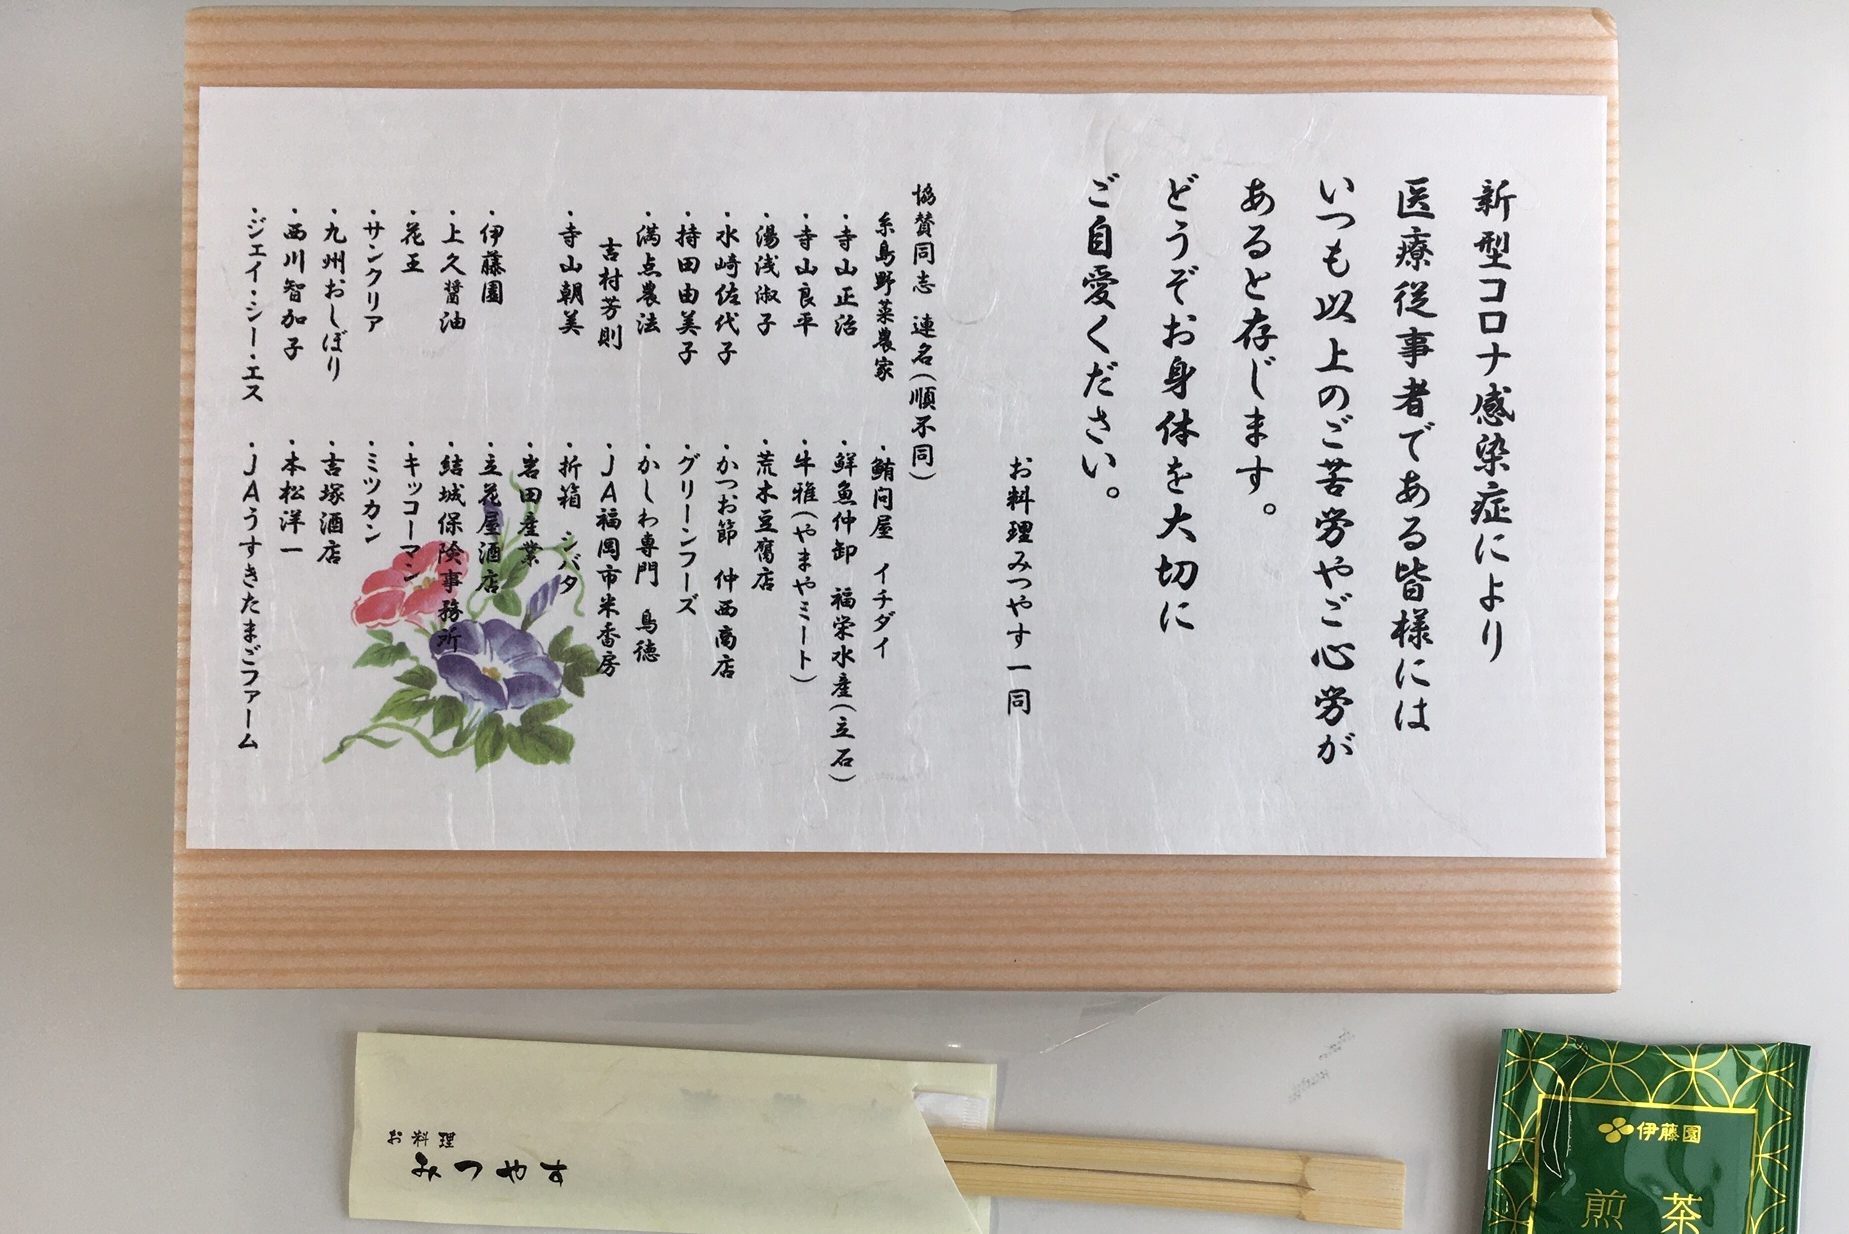 新型コロナ感染症により
医療従事者である皆様には
いつも以上のご苦労やご心労が
あると存じます。
どうぞお身体を大切に
ご自愛ください。
お料理みつやす一同
協賛同志 連名(順不同)
糸島野菜農家
・寺山正治
・寺山良平
・湯浅淑子
・水崎佐代子
・持田由美子
・満点農法
吉村芳則
・寺山朝美
・伊藤園
・上久醤油
・花王
・サンクリア
・九州おしぼり
・西川智加子
・ジェイ・シー・エス
・鮪問屋 イチダイ
・鮮魚仲卸 福栄水産(立石)
・牛雅(やまやミート)
・荒木豆腐店
・かつお節 仲西商店
・グリーンフーズ
・かしわ専門 鳥徳
・JA福岡市米香房
・折箱 シバタ
・岩田産業
・立花屋酒店
・結城保険事務所
・キッコーマン
・ミツカン
・吉塚酒店
・本松洋一
・JAうすきたまごファーム
お料理
みつやす
伊藤園
煎茶